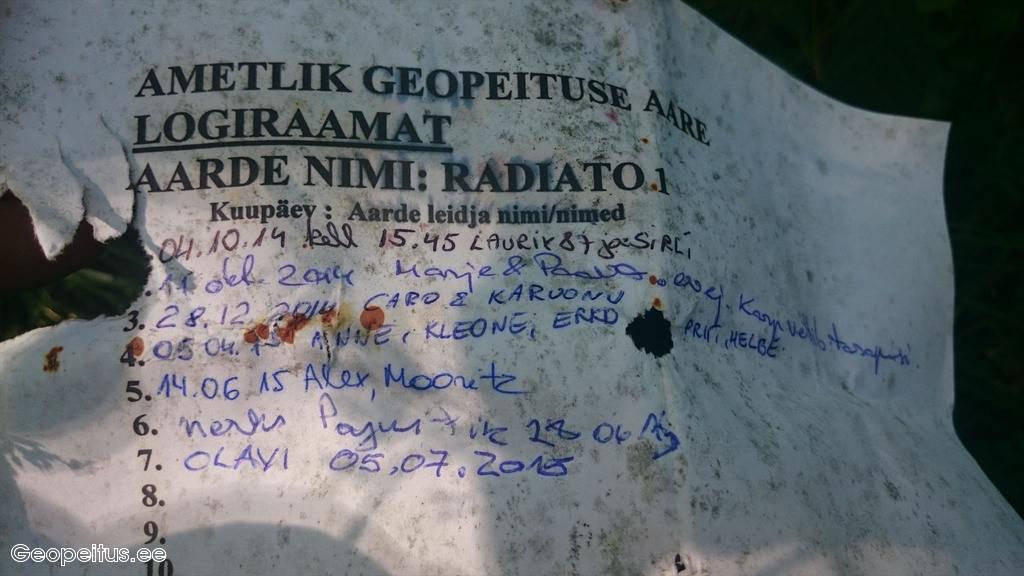 AMETLIK GEOPEITUSE AARE
LOGIRAAMAT
AARDE NIMI: RADIATO 1
Kuupäev : Aarde leidja nimi/nimed
04.10.14 kell 15.45 LAURIK87 ja SIRLI
11 okt 2014
3. 28.12.2014 CARO & KARVONU
4. 05 04. 15 ANNE, KLEONE, ERKO PRIIT, HELBE.
5. 14.06 15 Alex, Mooritz
6. 28 06
7. OLAVI 05.07.2015
8.
9.
10
Geopeitus.ee